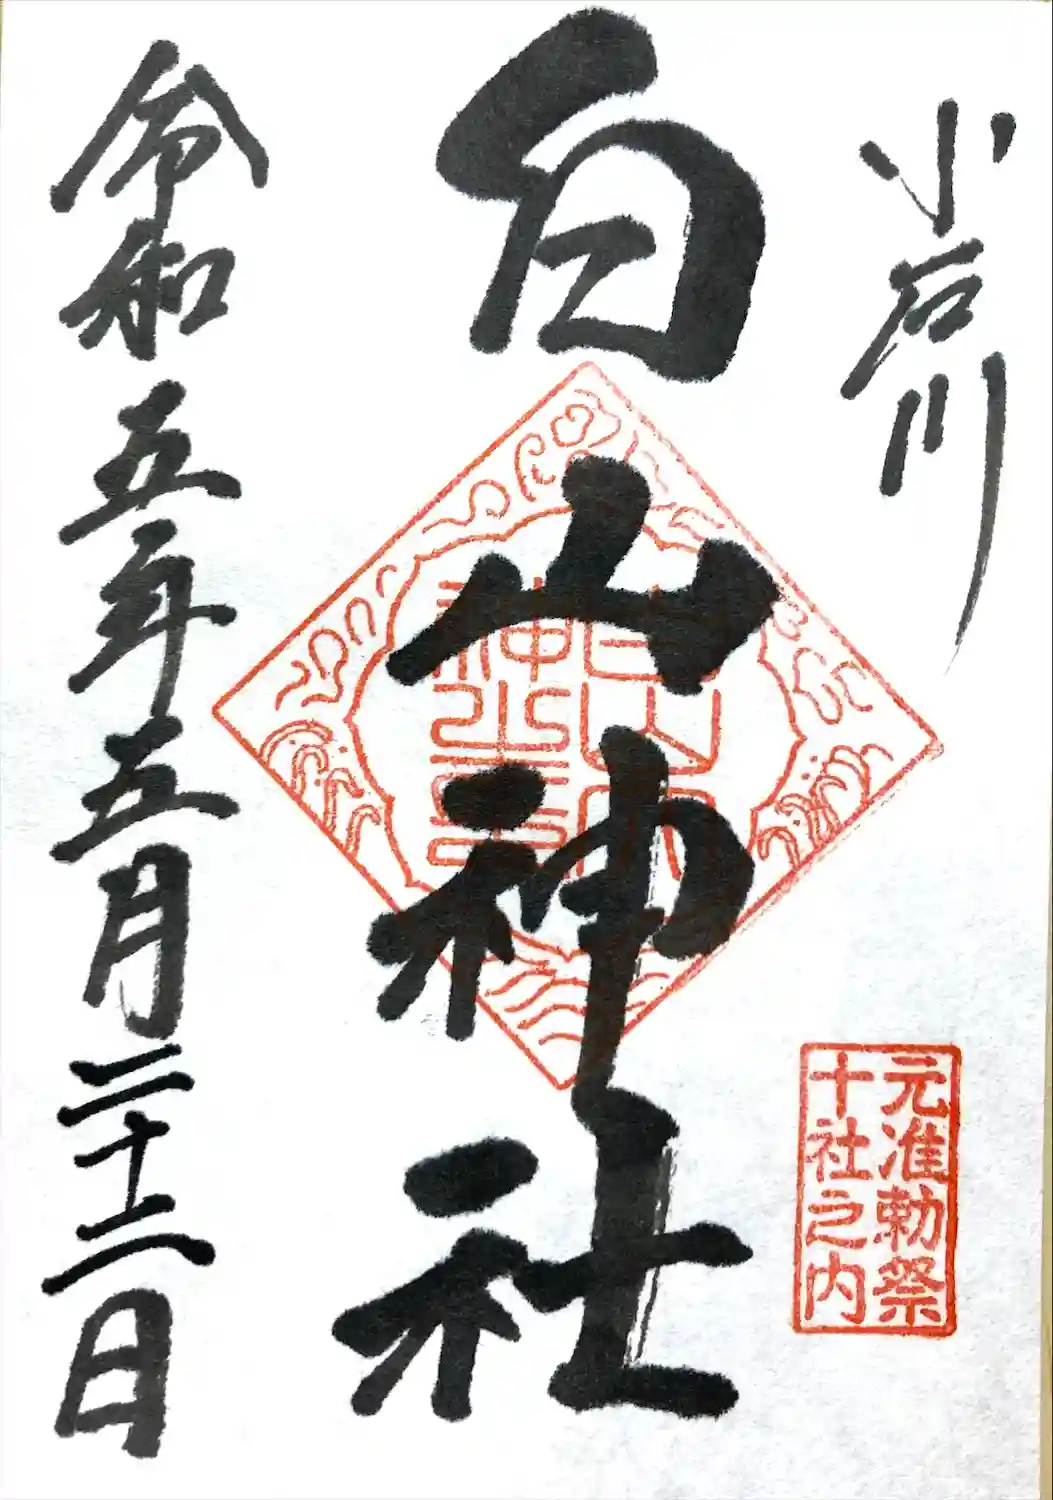 小石川
元准勅祭
十社之内
白山神社
令和五年五月二十二日